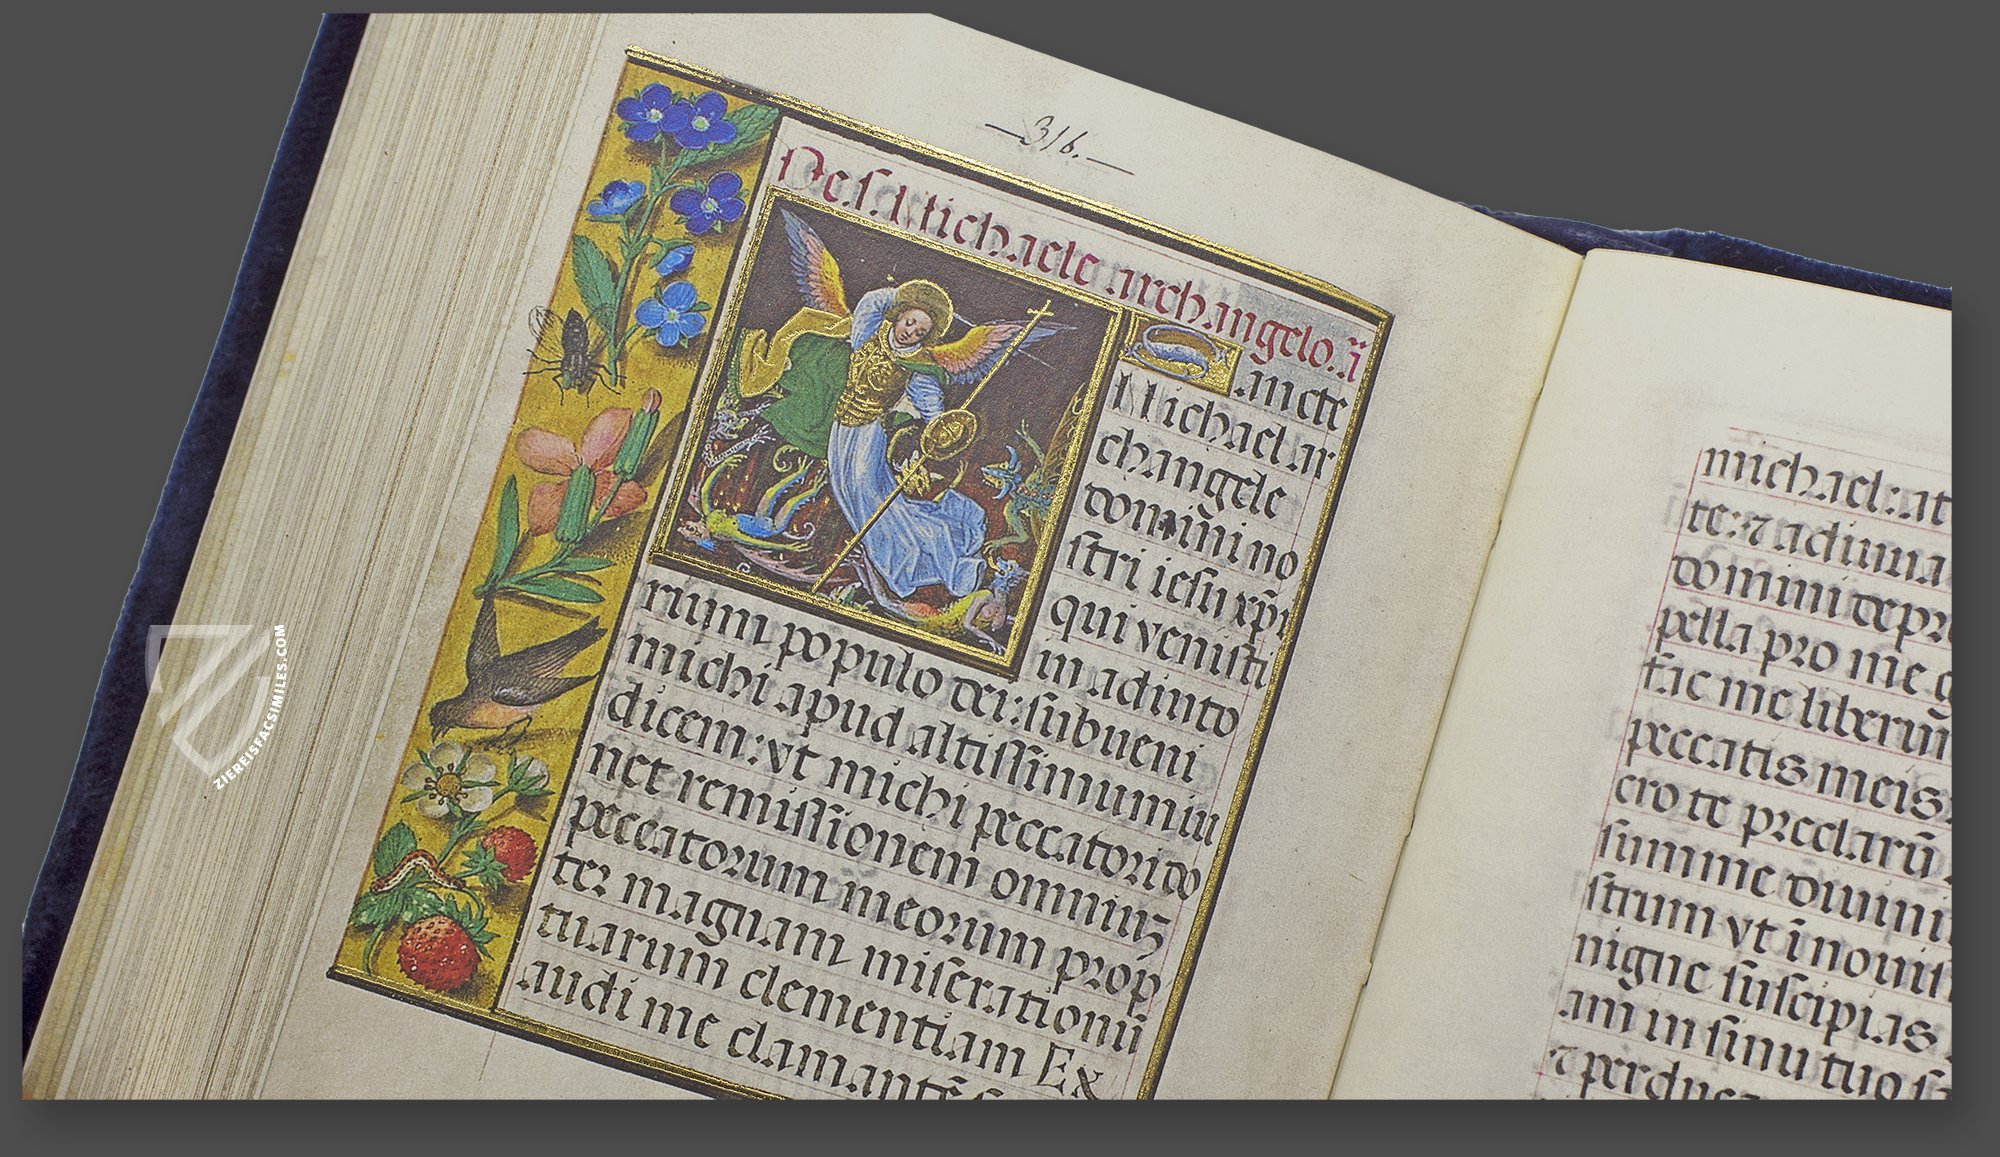 316.
De.s. Michaele archangelo. ĩ
Sancte
Michael ar
changele
domini no
stri iesu xp̃i
qui venisti
in adiuto
rium populo dei: subueni
michi apud altissimum iu
dicem: vt michi peccatori do
net remissionem omniuz
peccatorum meorum prop
ter magnam miserationũ
tuarum clementiam Ex
audi me clamantẽ
michael: at
te: ⁊ adiuua
domini depr
pella pro me g
fac me liberuɩ
peccatis meis
cro te preclarũ
summe diuini
strum vt ĩ nouis
nigne suscipias
am in sinu tuo s
⁊ perduc
ZIEREISFACSIMILES.COM